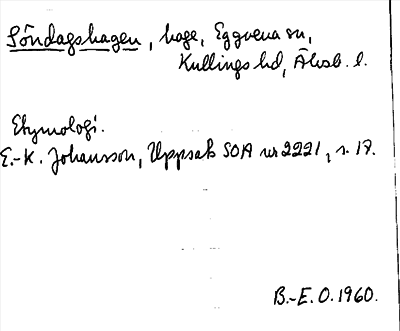 Söndagshagen, hage, Eggvena sn,
Kullings hd, Älvsb. l.
Etymologi.
E.-K. Johansson, Uppsats SOA nr 2221, s. 17.
B.-E. O. 1960.